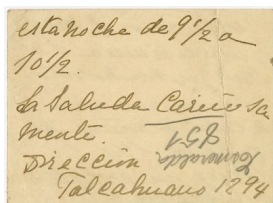 esta noche de 9 1/2 a
10 1/2.
La Saluda Cariñosa
mente.
Dirección
Talcahuano 1294
Esmeralda
851